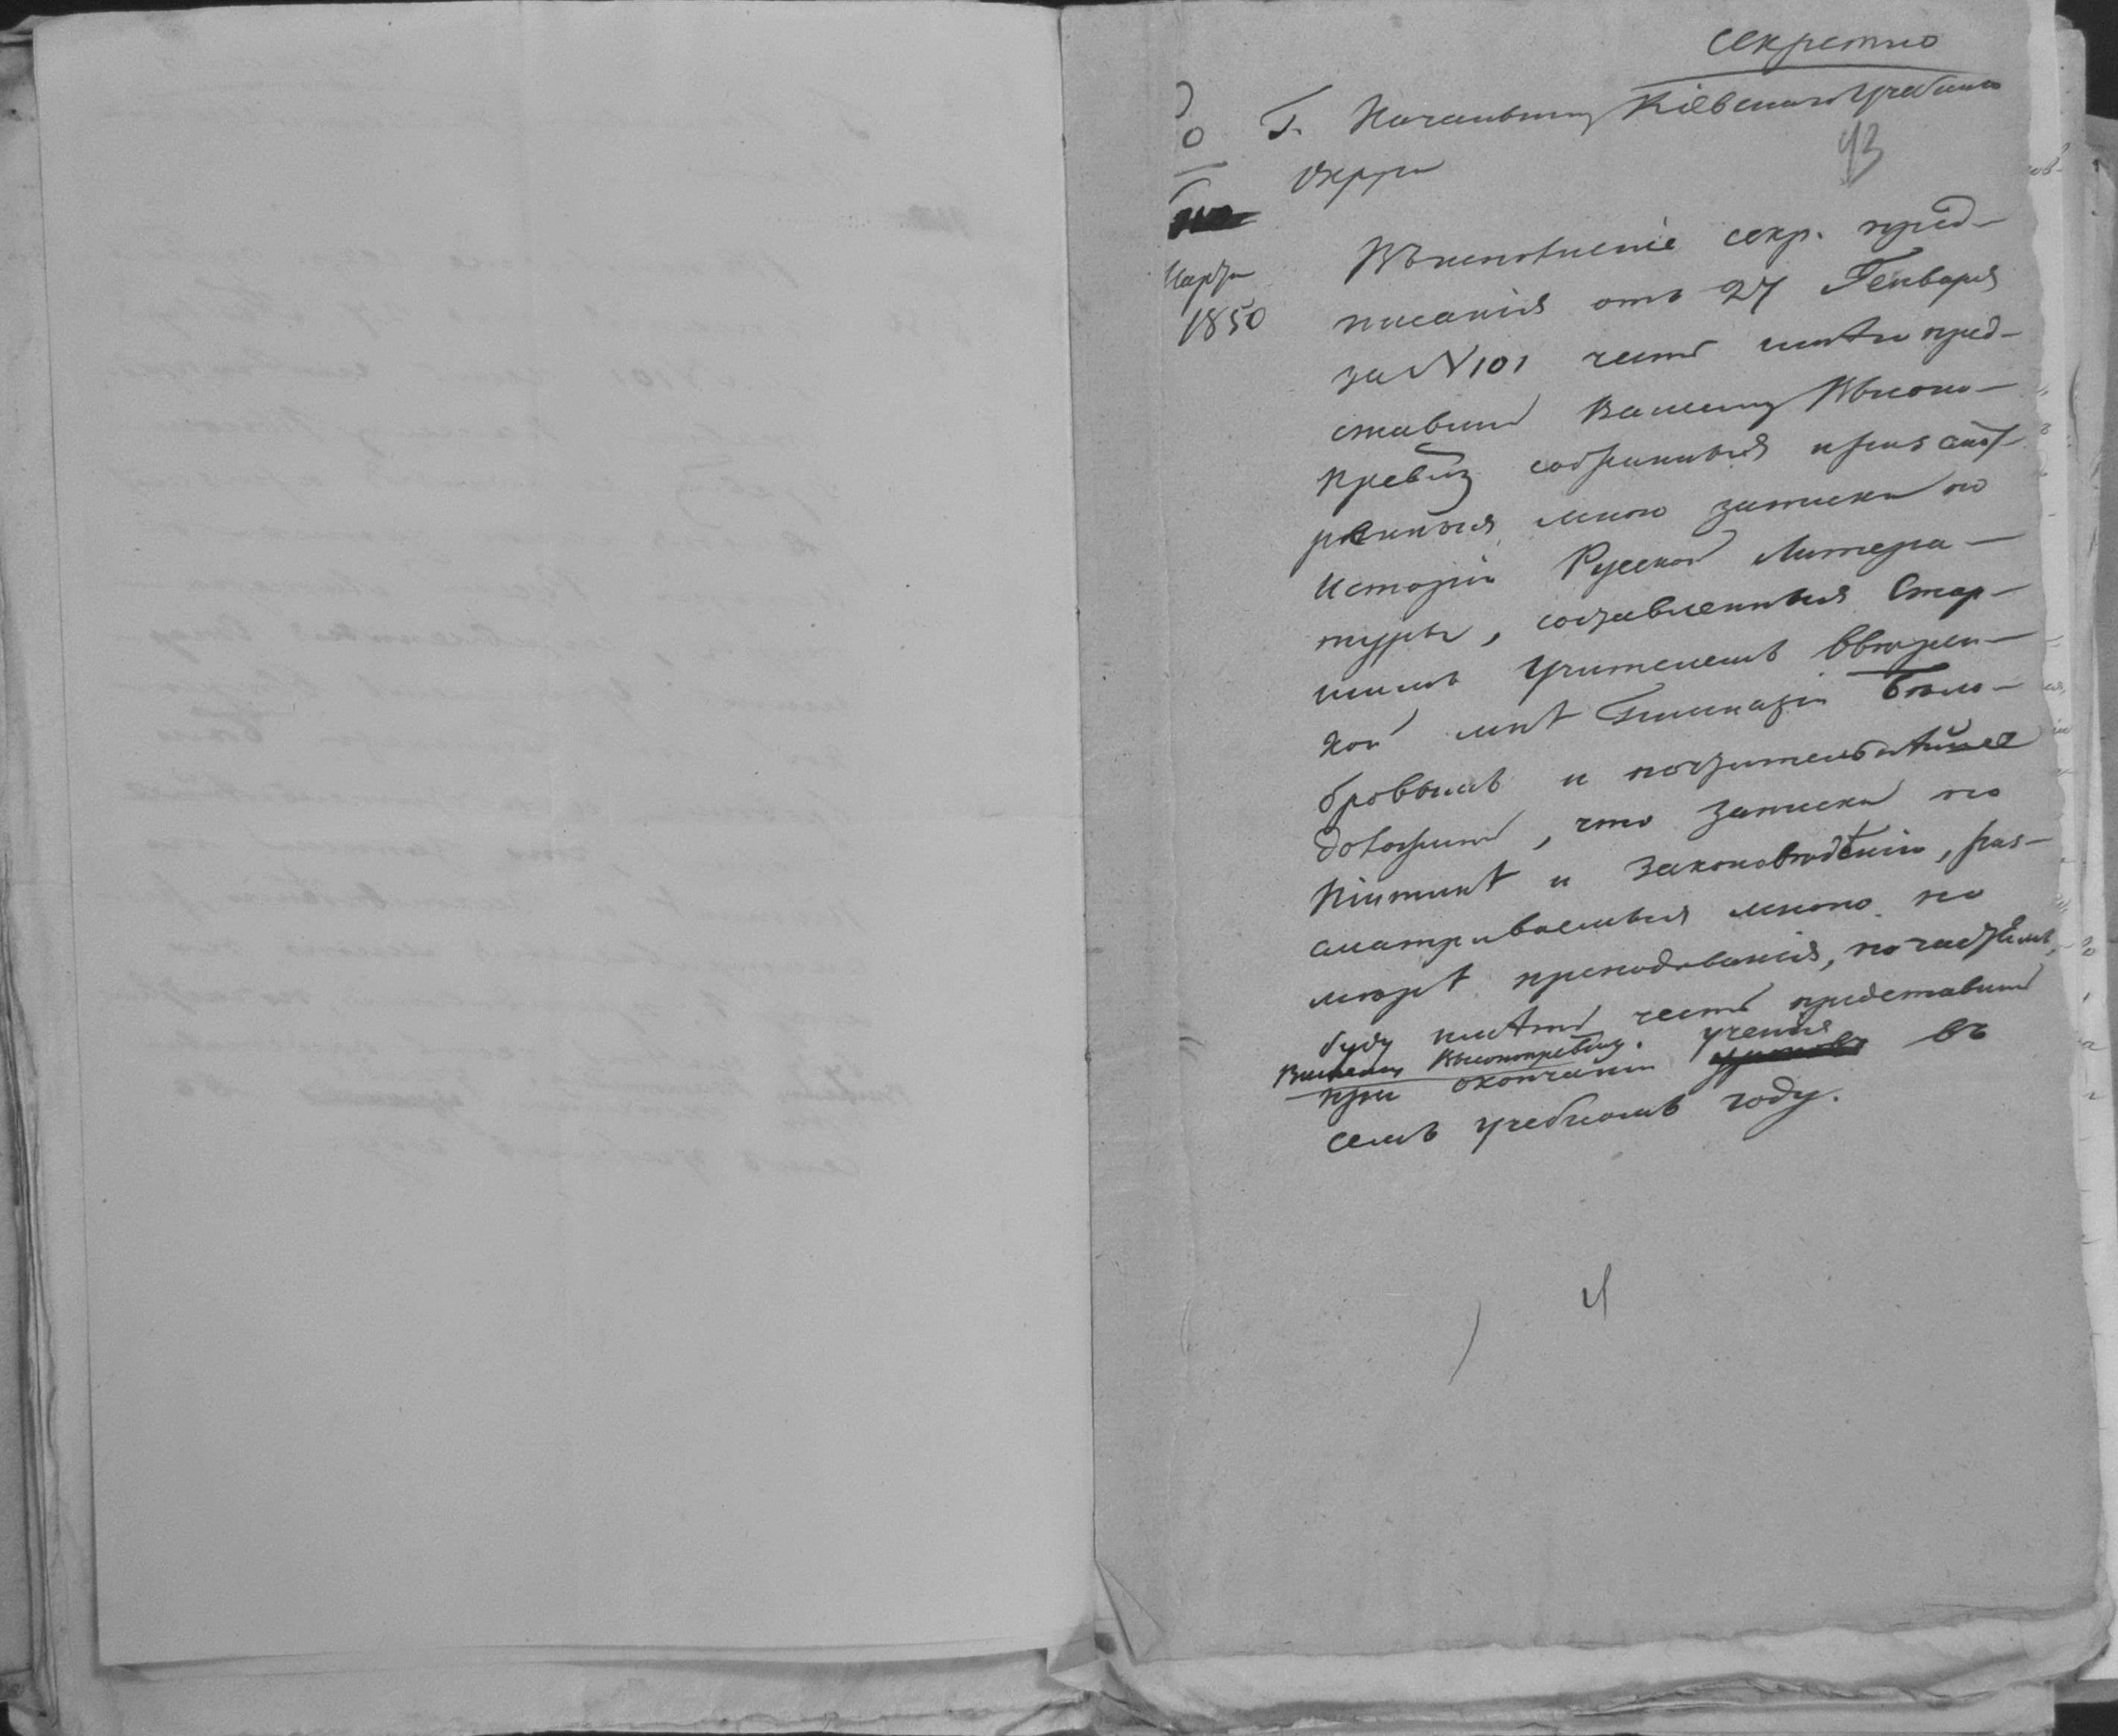 Секретно
Г. Начальнику Кіевскаго Учебнаго
Округа
93
Марта
1850
Въ исполненіе секр. пред-
писанія отъ 27 Генваря
за N 101 честь имѣю пред-
ставить Вашему Высоко-
превву собранныя и
мною записки по
Исторіи Русской Литера-
туры, составленныя Стар-
шимъ Учителемъ ввѣрен-
ной мнѣ Гимназіи Бѣло-
бровымъ и почтительнѣйше
доложить, что записки по
Піитикѣ и Законовѣденію, раз-
сматриваемыя мною по
мѣрѣ преподаванія, по частямъ,
буду имѣть честь представить
Вашему Высокопревву.
при окончаніи ученія въ
семъ учебномъ году.